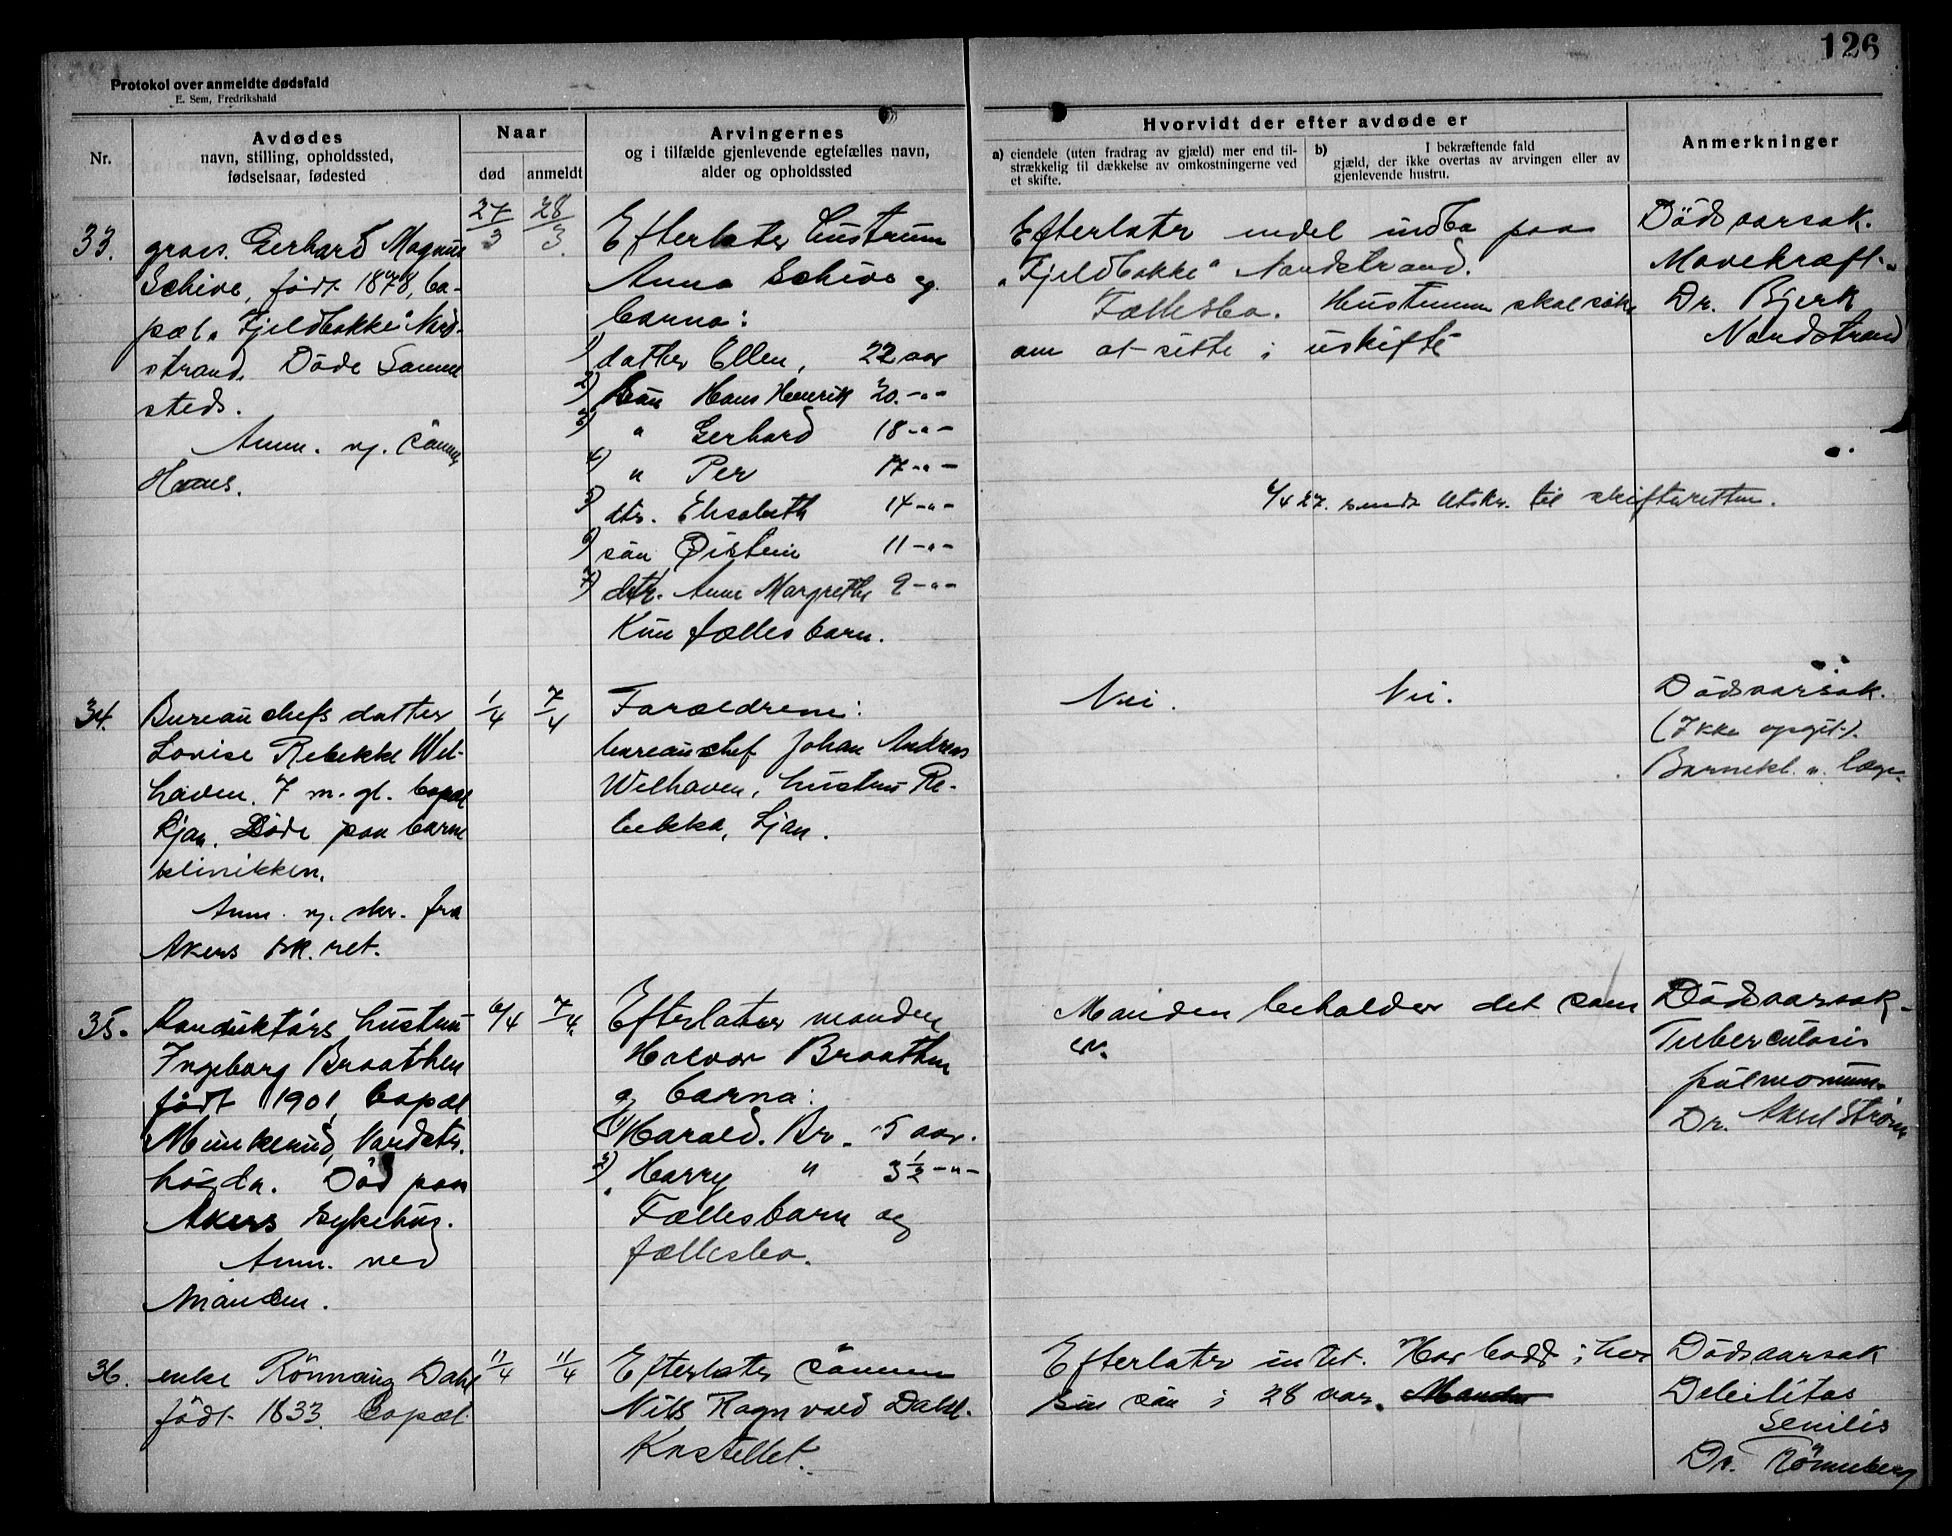 126
Protokol over anmeldte dødsfald
E. Sem, Fredrikshald
Nr.
Avdødes
navn, stilling, opholdssted,
fødselsaar, fødested
Naar
død
anmeldt
Arvingernes
og i tilfælde gjenlevende egtefælles navn,
alder og opholdssted
Hvorvidt der efter avdøde er
a) eiendele (uten fradrag av gjæld) mer end til-
strækkelig til dækkelse av omkostningerne ved
et skifte.
b) I bekræftende fald
gjæld, der ikke overtas av arvingen eller av
gjenlevende hustru.
Anmerkninger
33.
gross. Gerhard Magnus
Schive, født 1878, bo-
pæl „Fjeldbakke" Nord-
strand. Döde samme
steds.
Anm. v. sönnen
Hans.
27/3
28/3.
Efterlater hustruen
Anna Schive og
barna:
1) datter Ellen, 22 aar
2) sön Hans Henrik 20 -"-
3) " Gerhard 18 -"-
4) " Per 17 -"-
5) dtr. Elisabeth 14 -"-
6) sön Øistein 11 -"-
7) dtr. Anne Margrethe 9 -"-
Kun fællesbarn.
Efterlater endel indbo paa
„Fjeldbakke" Nordstrand.
Fællesbo. Hustruen skal söke
om at sitte i uskifte
6/4 27. sendt utskr. til skifteretten.
Dödsaarsak.
Mavekræft.
Dr. Bjerk
Nordstrand
34.
Bureauchefs datter
Lovise Rebekke Wel-
haven. 7 m. gl. bopæl
Ljan. Döde paa barne
klinikken.
Anm. v. skr. fra
Akers sk. ret.
1/4
7/4
Forældrene:
bureauchef Johan Andreas
Welhaven, hustru Re-
bekka, Ljan.
Nei.
Nei.
Dödsaarsak.
(Ikke opgit).
Barnekl. læge.
35.
Konduktörs hustru
Ingeborg Braathen
født 1901, bopæl
Munkerud, Nordstr.
högda. Död paa
Akers sykehus.
Anm. ved
Manden.
6/4
7/4.
Efterlater manden
Halvor Braathen
og barna:
1) Harald. Br. 5 aar.
2) Harry " 3 1/2 -"-
Fællesbarn og
fællesbo.
Manden beholder det som
er.
Dödsaarsak
Tuberculosis
pulmonum.
Dr. Aksel Strøm
36.
enke Rönnaug Dahl
født 1833. bopæl
11/4
11/4
Efterlater sönnen
Nils Ragnvald Dahl.
Kastellet.
Efterlater intet. Har bodd i hos
sin sön i 28 aar. Manden
Dödsaarsak
Debilitas
senilis
Dr. Rönneberg